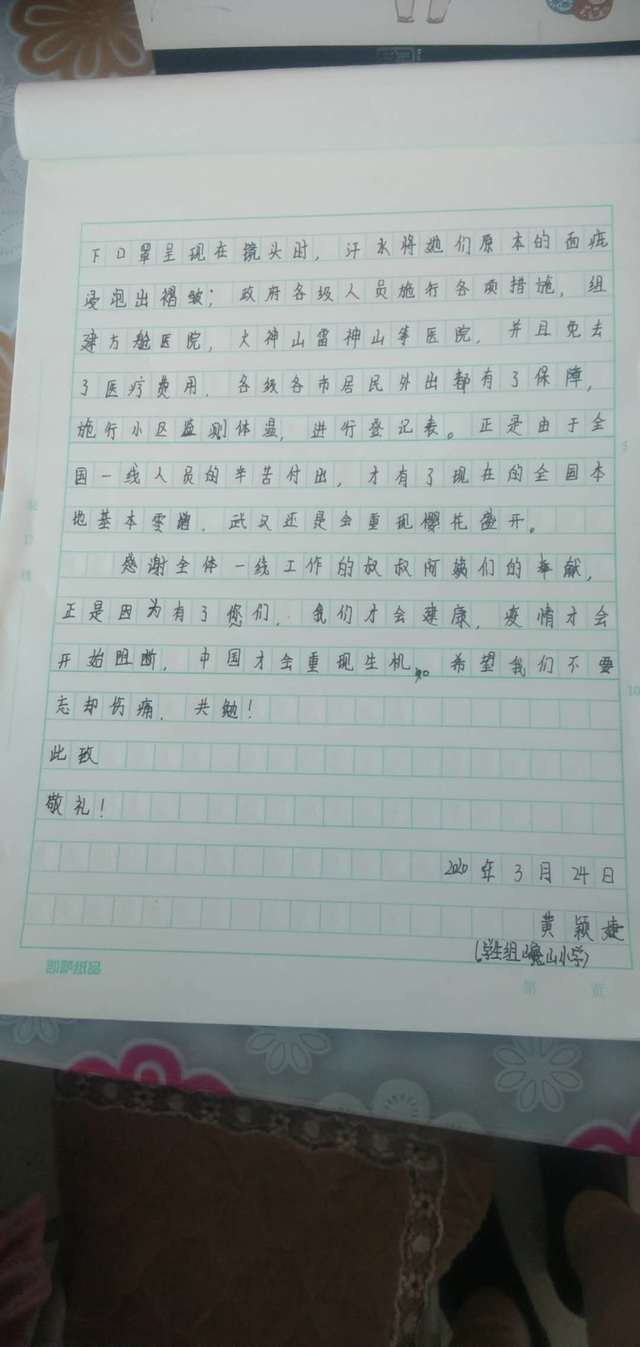 下口罩呈现在镜头时，汗水将她们原本的面疵
浸泡出褶皱；政府各级人员施行各项措施，组
建方舱医院，火神山雷神山等医院，并且免去
了医疗费用，各线各市居民外出都有了保障，
施行小区监测体温，进行登记表。正是由于全
国一线人员的辛苦付出，才有了现在的全国本
地基本零增，武汉还是会重现樱花盛开。
感谢全体一线工作的叔叔阿姨们的奉献，
正是因为有了您们，我们才会健康，疫情才会
开始阻断，中国才会重现生机。希望我们不要
忘却伤痛，共勉！
此致
敬礼！
2020年3月24日
黄颖婕
(学生组 山小学)
凯萨纸品
第 页
5
10